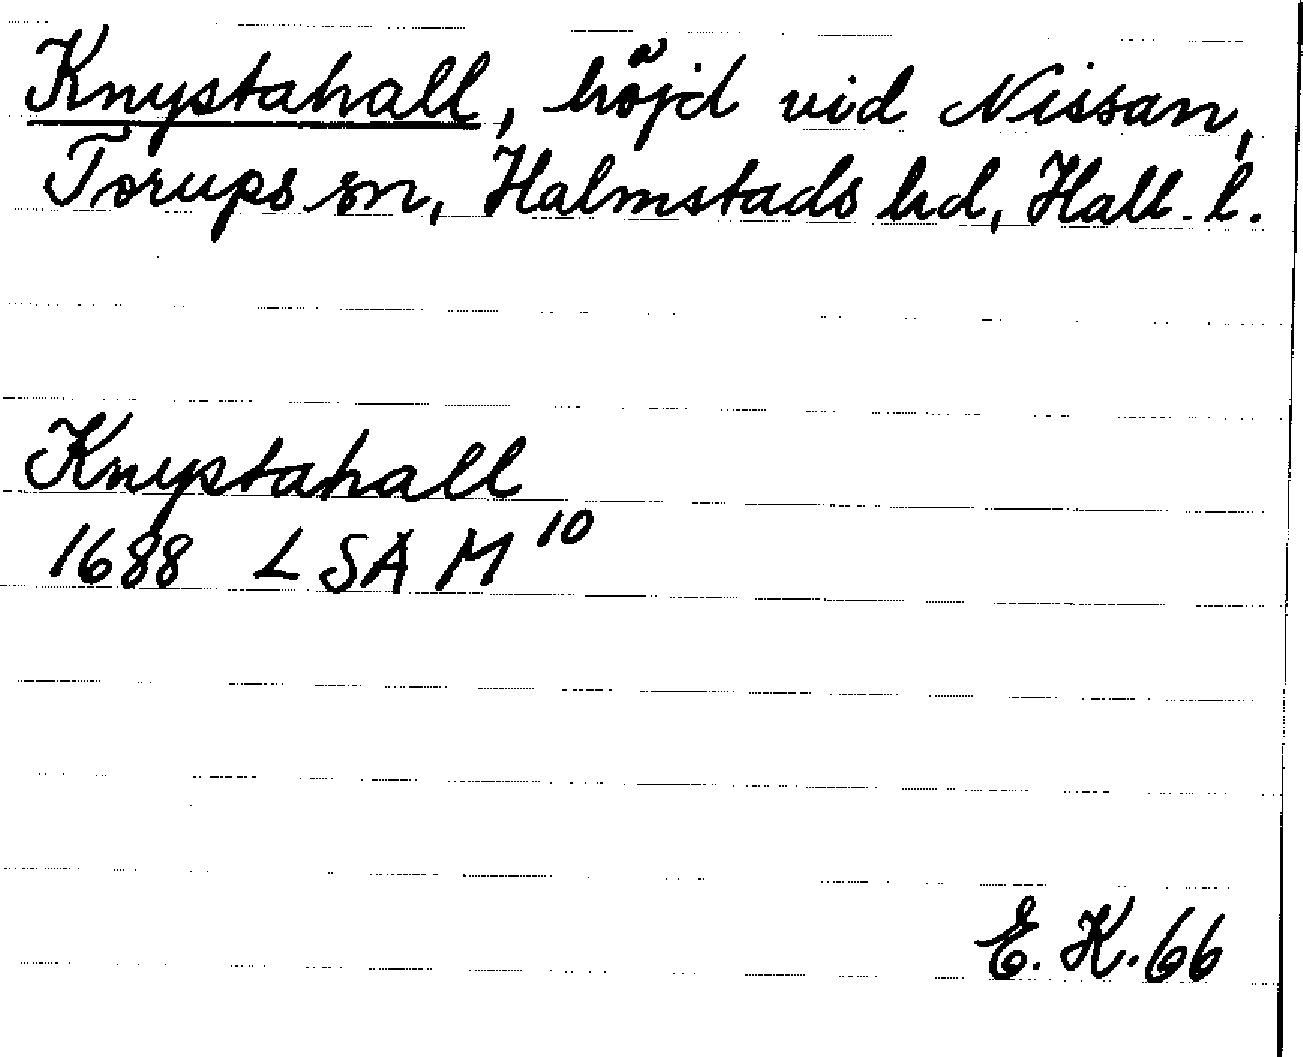 Knystahall, höjd vid Nissan,
Torups sn, Halmstads hd, Hall. l.
Knystahall
1688 LSA M 10
E. K. 66